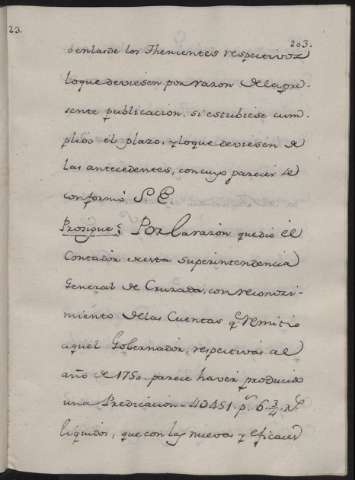 23.
203.
ô en las de los Thenientes respectivos
lo que deviesen por razon de la pre-
sente publicacion, si estubiese cum-
plido el plazo, y lo que deviesen de
las antecedentes, con cuyo parecer se
conformó S.E.
Prosigue Por la razon que dió el
Contador de esta Superintendencia
General de Cruzada, con reconoci-
miento de las Cuentas q.e remitio
aquel Gobernador, respectivas al
año de 1750 parece haver producido
una Predicacion 40451 p.s 6 3/4 r.s
liquidos, que con las nuevas y eficaces